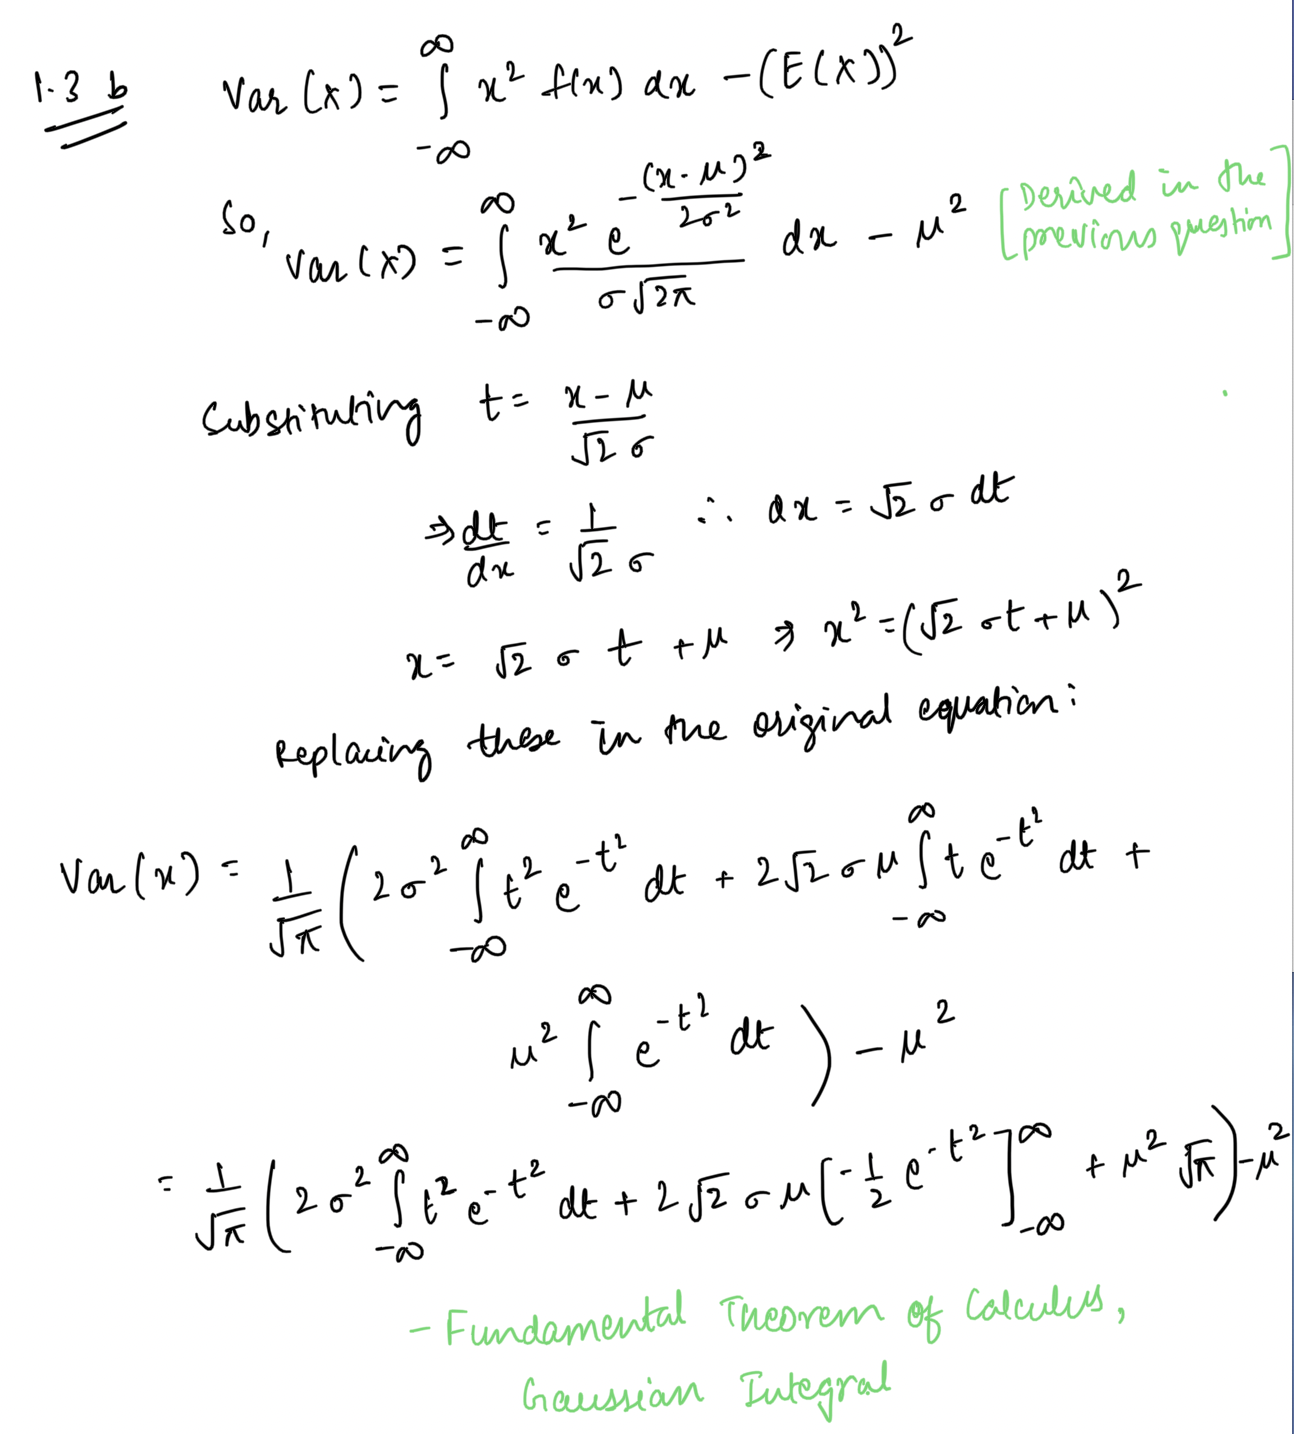 1.3 b Var(X) = ∫_{-∞}^{∞} x² f(x) dx − (E(X))²
So, Var(X) = ∫_{-∞}^{∞} \frac{x² e^{-\frac{(x-μ)²}{2σ²}}}{σ√2π} dx − μ² [Derived in the previous question]
Substituting t = \frac{x-μ}{√2 σ}
⇒ \frac{dt}{dx} = \frac{1}{√2 σ} ∴ dx = √2 σ dt
x = √2 σ t + μ ⇒ x² = (√2 σt + μ)²
Replacing these in the original equation:
Var(x) = \frac{1}{√π} ( 2σ² ∫_{-∞}^{∞} t² e^{-t²} dt + 2√2 σ μ ∫_{-∞}^{∞} t e^{-t²} dt +
μ² ∫_{-∞}^{∞} e^{-t²} dt ) − μ²
= \frac{1}{√π} ( 2σ² ∫_{-∞}^{∞} t² e^{-t²} dt + 2√2 σ μ [ -\frac{1}{2} e^{-t²} ]_{-∞}^{∞} + μ² √π ) − μ²
- Fundamental Theorem of Calculus,
Gaussian Integral